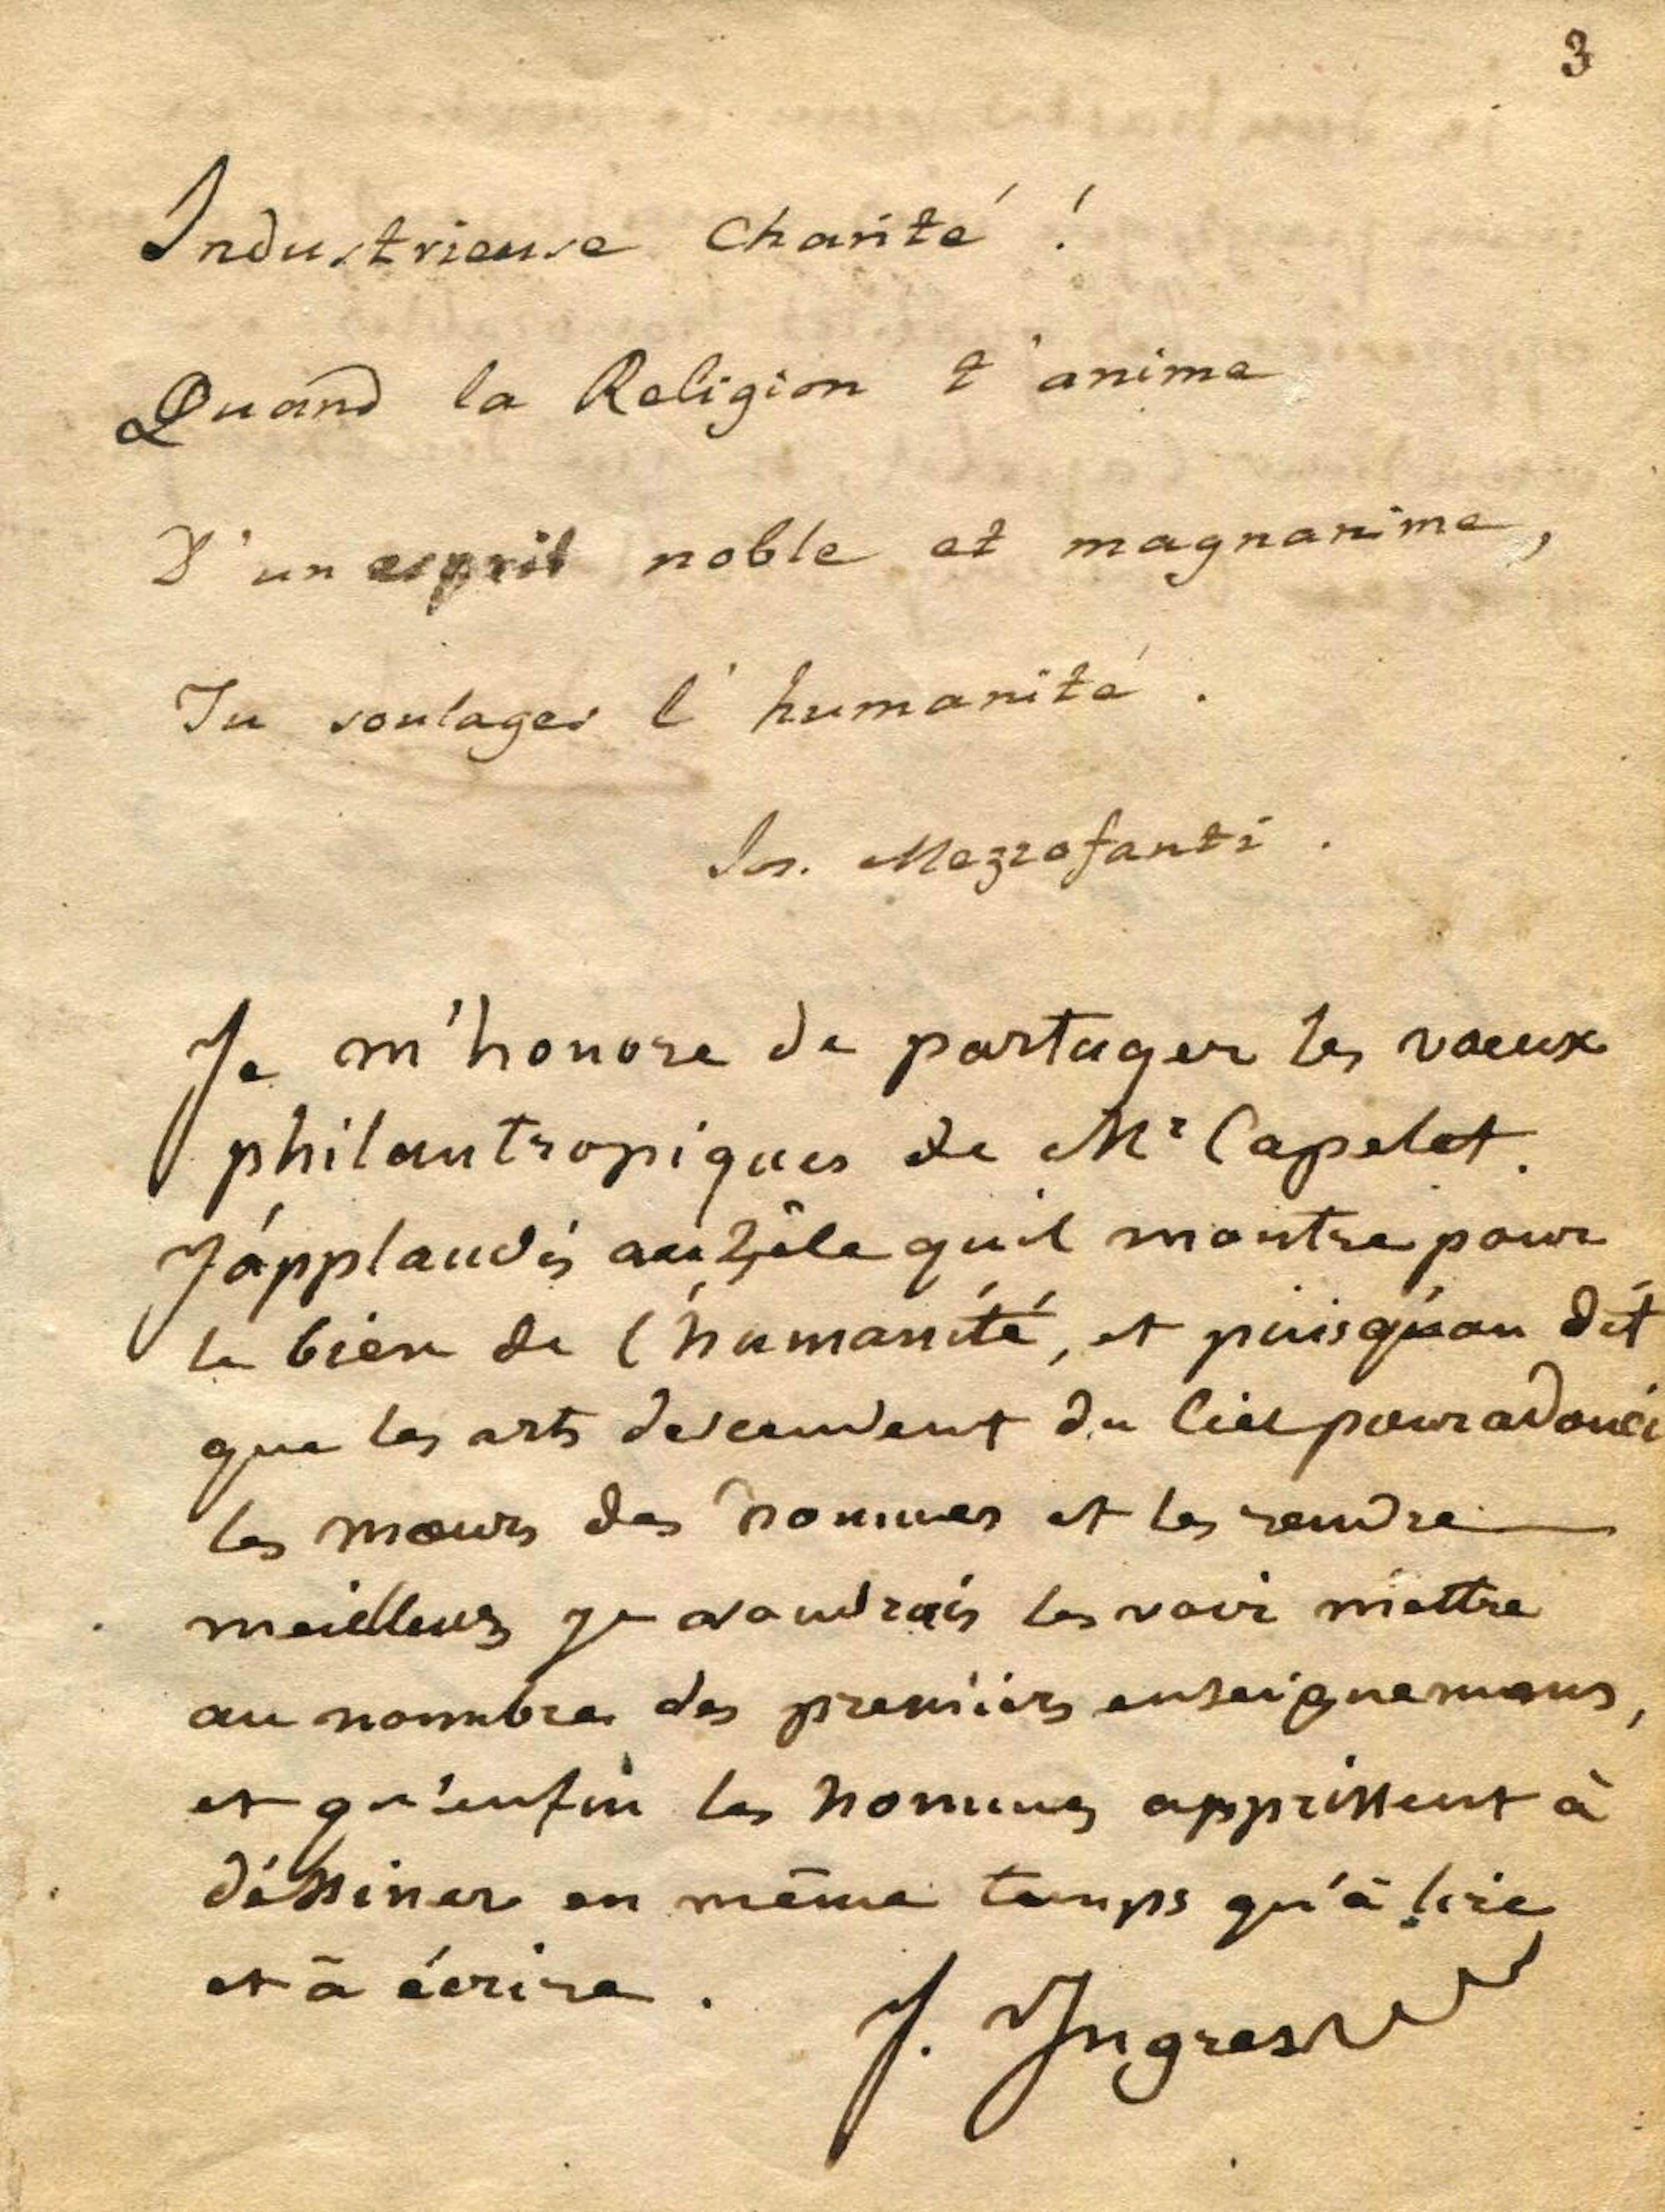 3
Industrieuse Charité !
Quand la Religion t'anime
D'un esprit noble et magnanime,
Tu soulages l'humanité .
Jos. Mezzofanti .
Je m'honore de partager les vœux
philantropiques de Mr Capelet.
J'applaudis au zèle qu'il montre pour
le bien de l'humanité, et puisqu'on dit
que les arts descendent du Ciel pour adouci
les mœurs des hommes et les rendre
meilleurs je voudrais les voir mettre
au nombre des premiers enseignemens,
et qu'enfin les hommes apprissent à
déssiner en même temps qu'à lire
et à écrire .
J. Ingres